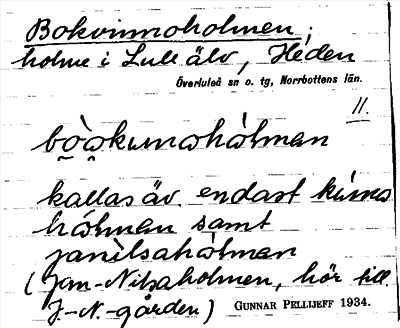 Bokvinnoholmen,
holme i Lule älv, Heden
Överluleå sn o. tg, Norrbottens län.
11.
kallas äv. endast
samt
(Jan-Nilsaholmen, hör till
J.-N.-gården) GUNNAR PELLIJEFF 1934.